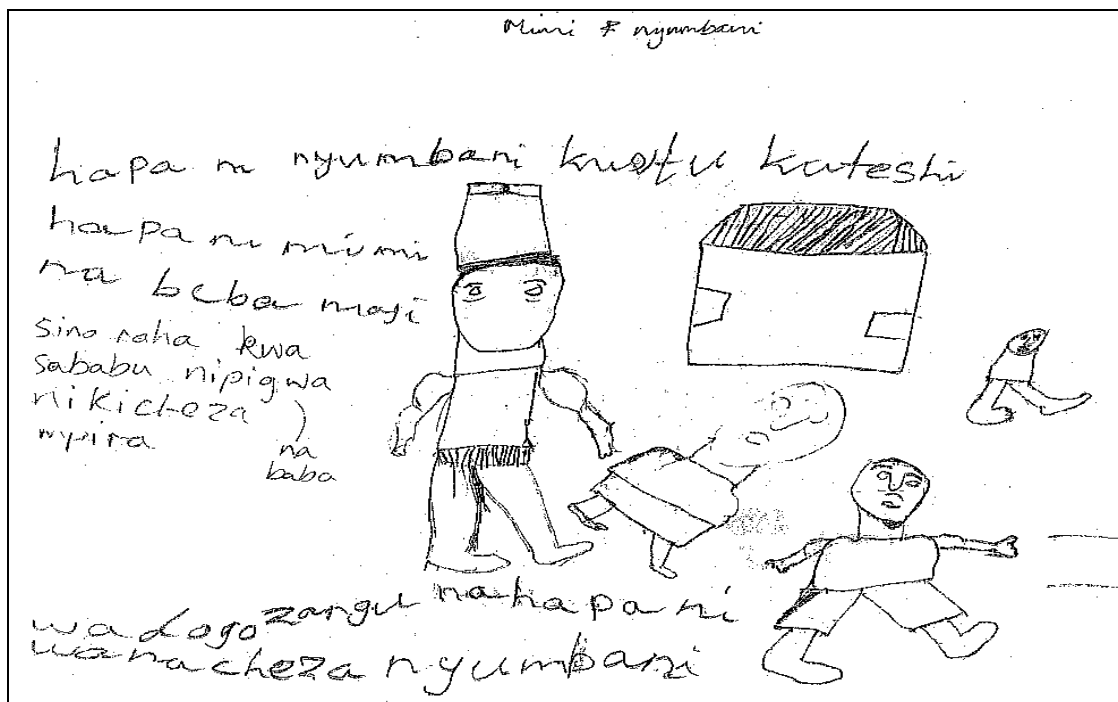 Mimi & nyumbani
hapa ni nyumbani kwetu kateshi
hapa ni mimi
na beba maji
sina raha kwa
sababu nipigwa
nikicheza )
mpira na
baba
na hapa ni
wadogo zangu
wanacheza nyumbani